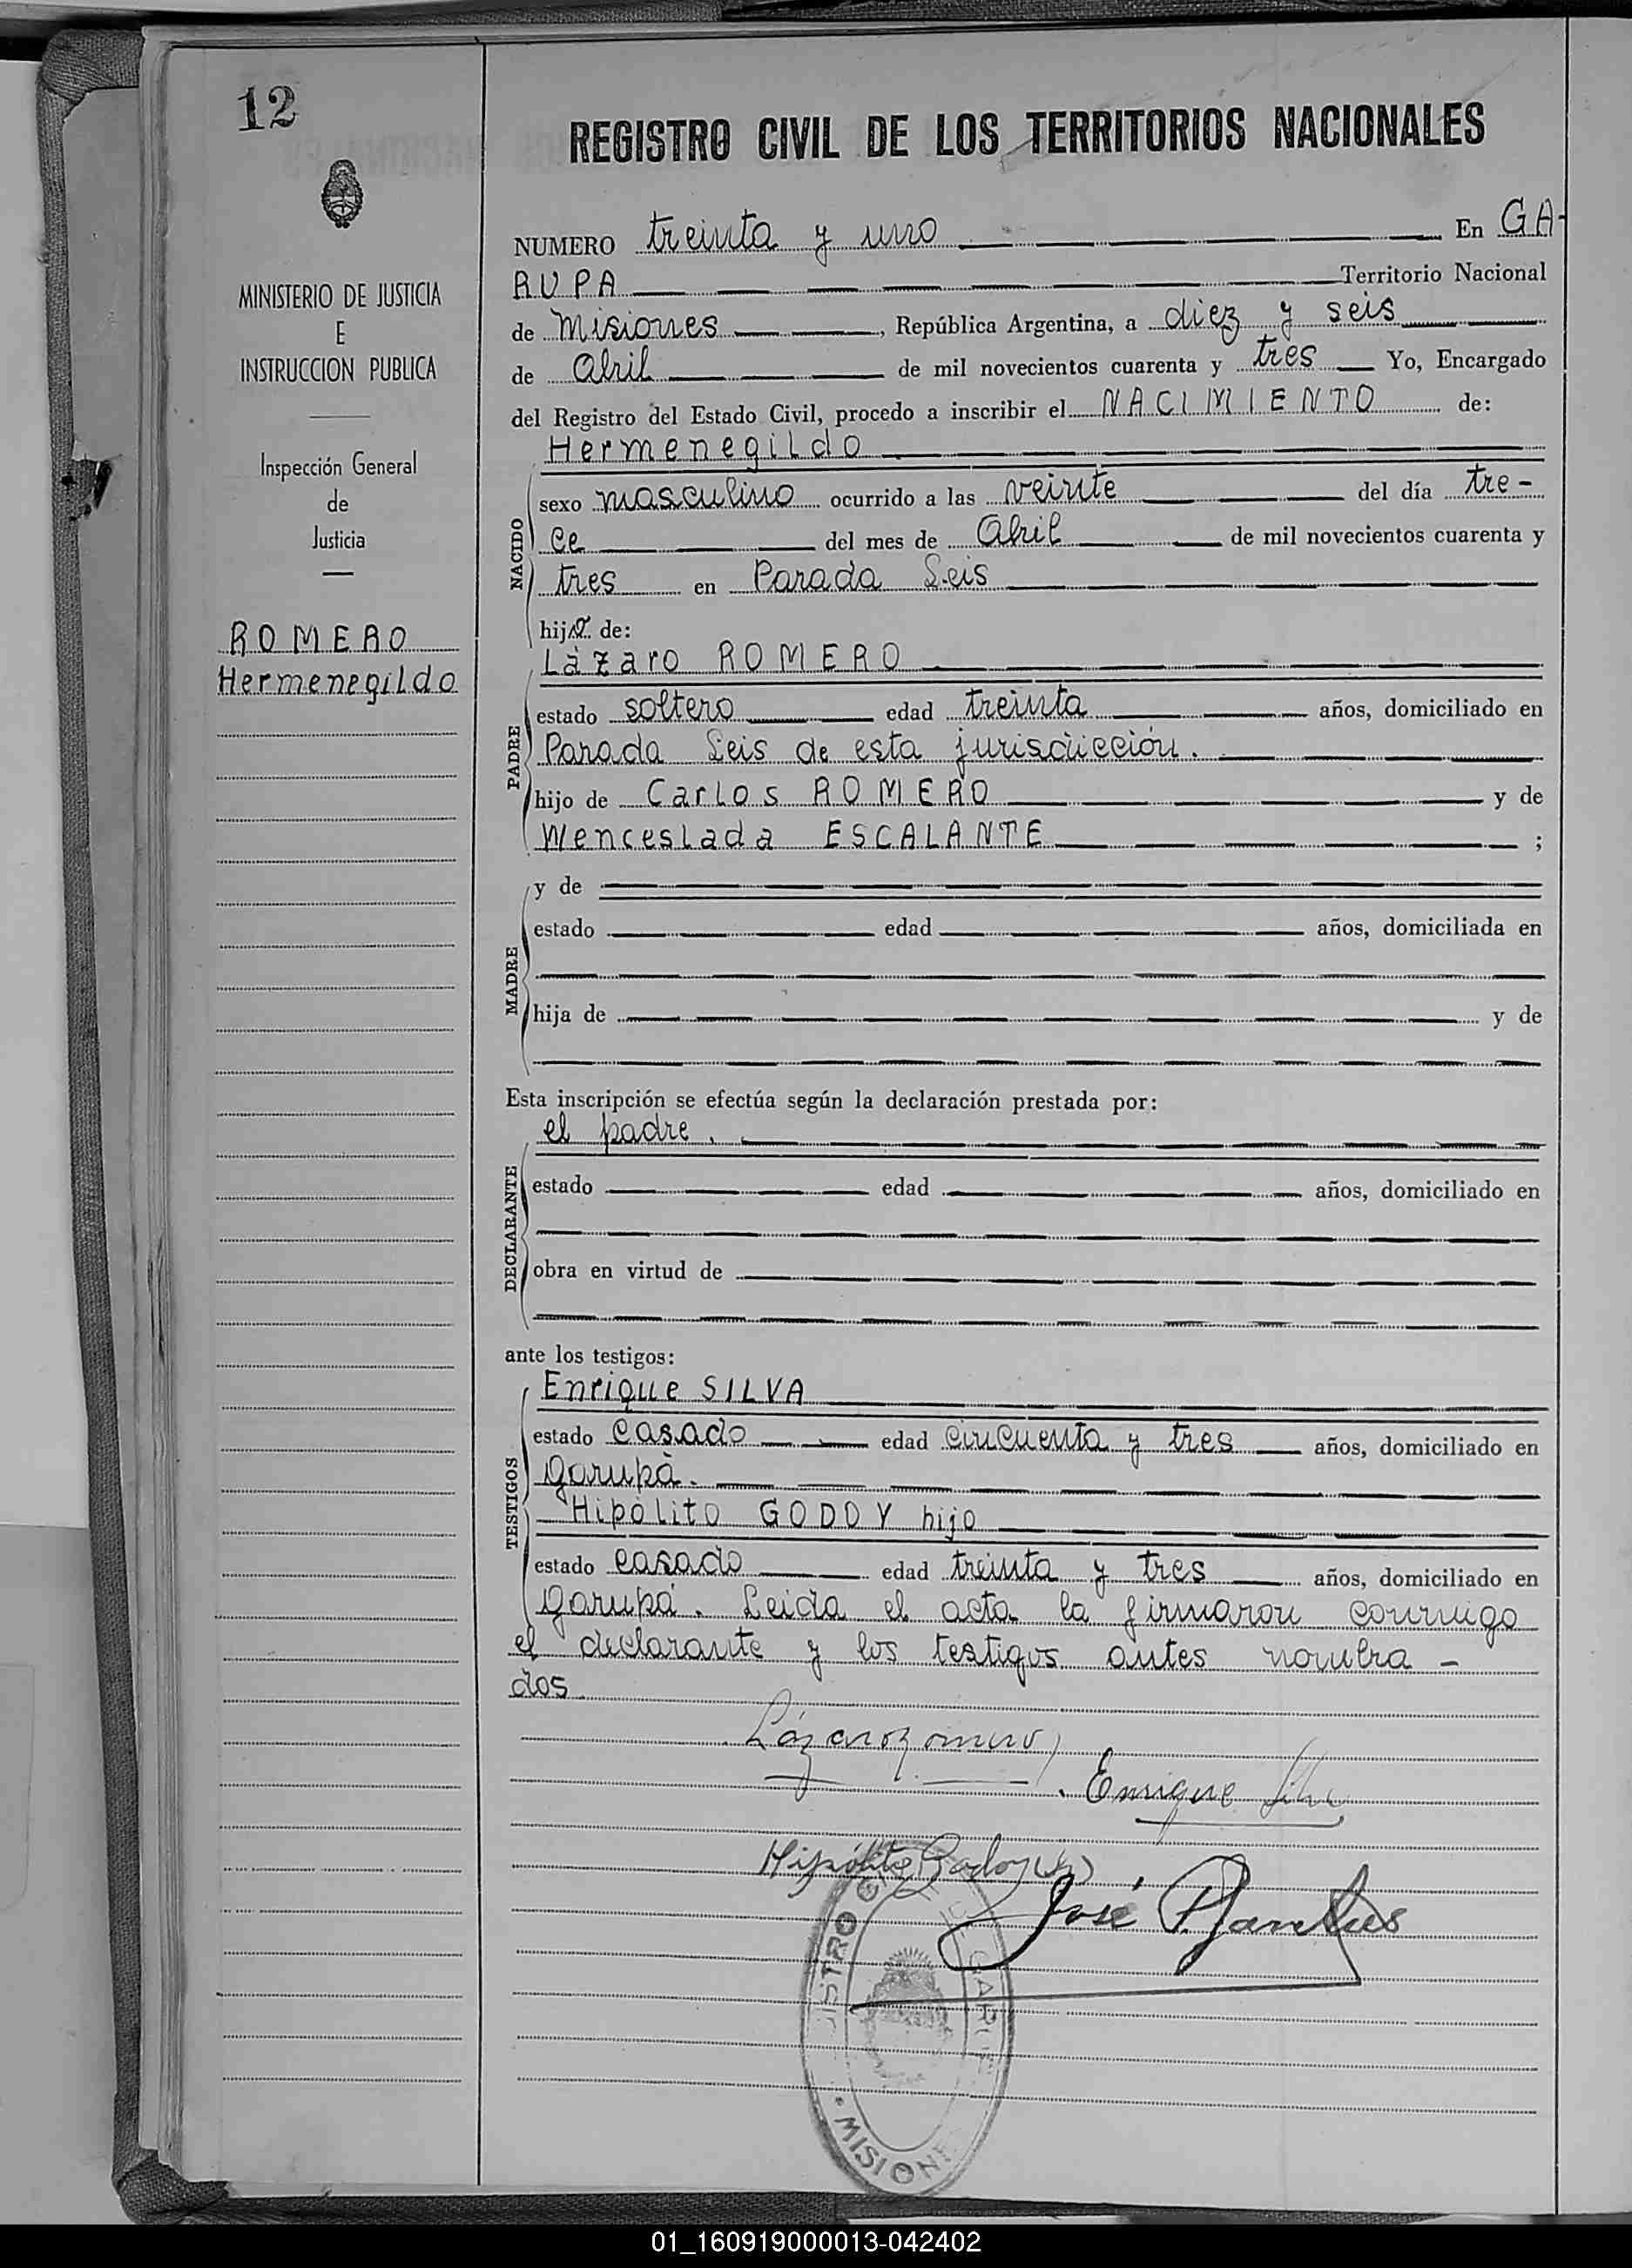 12
MINISTERIO DE JUSTICIA
E
INSTRUCCION PUBLICA
Inspección General
de
Justicia
ROMERO
Hermenegildo
REGISTRO CIVIL DE LOS TERRITORIOS NACIONALES
NUMERO treinta y uno En GA-
RUPA Territorio Nacional
de Misiones, República Argentina, a diez y seis
de Abril de mil novecientos cuarenta y tres Yo, Encargado
del Registro del Estado Civil, procedo a inscribir el NACIMIENTO de:
Hermenegildo
NACIDO
sexo masculino ocurrido a las veinte del día tre-
ce del mes de Abril de mil novecientos cuarenta y
tres en Parada Seis
hijo de:
Làzaro ROMERO
PADRE
estado soltero edad treinta años, domiciliado en
Parada Seis de esta jurisdicción.
hijo de Carlos ROMERO y de
Wenceslada ESCALANTE ;
y de
MADRE
estado edad años, domiciliada en
hija de y de
Esta inscripción se efectúa según la declaración prestada por:
el padre.
DECLARANTE
estado edad años, domiciliado en
obra en virtud de
ante los testigos:
Enrique SILVA
TESTIGOS
estado casado edad cincuenta y tres años, domiciliado en
Garupà.
Hipòlito GODOY hijo
estado casado edad treinta y tres años, domiciliado en
Garupá. Leida el acta la firmaron conmigo
el declarante y los testigos antes nombra-
dos
Lázaro Romero
Enrique Silva
Hipólito Godoy (h)
José
MISIONES
01_160919000013-042402